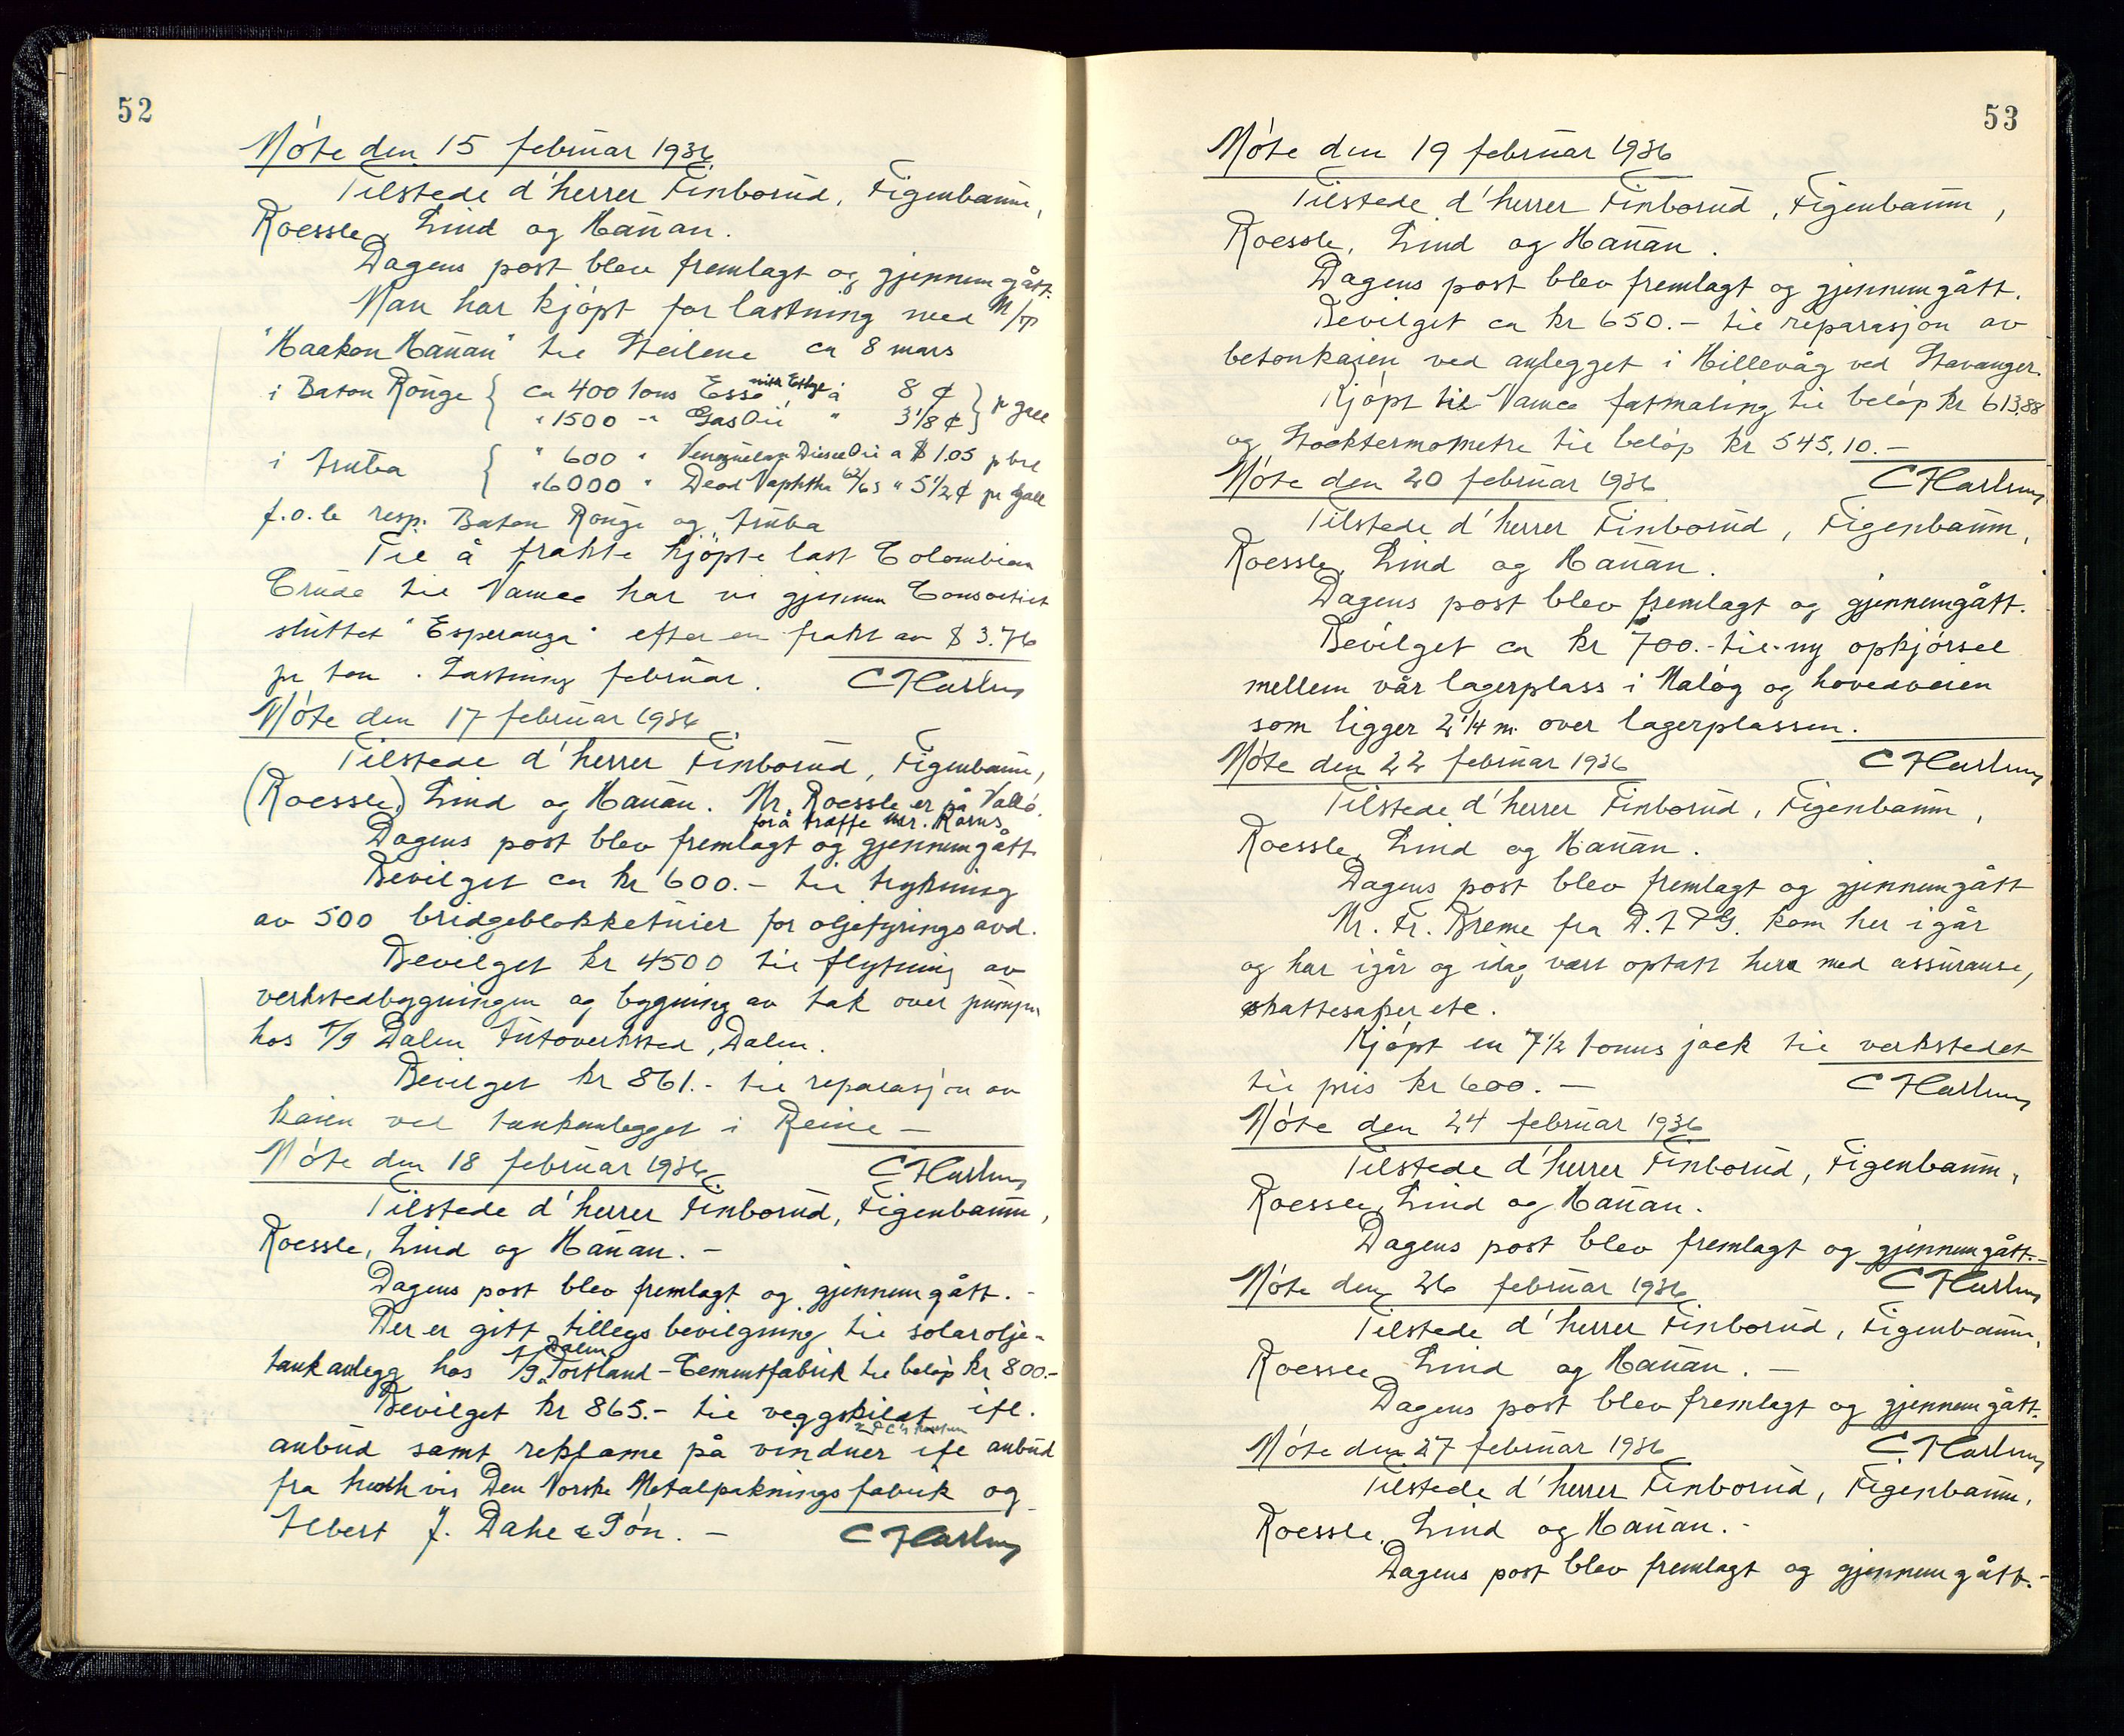 52
Möte den 15 februar 1936.
Tilstede d'herrer Finborud, Figenbaum,
Roessle, Lind og Hauan.
Dagens post blev fremlagt og gjennemgått.
Man har kjöpt for lastning med M/T
"Haakon Hauan" til Steilene ca 8 mars
i Baton Rouge { ca 400 tons Esso à 8 ¢ } pr gall
" 1500 -"- GasOil " 3 1/8 ¢
i Aruba { " 600 " Venezuelan DieselOil a $ 1.05 p brl
" 6000 " Dead Naphtha 62/63 " 5 1/2 ¢ pr Gall
f.o.b resp. Baton Rouge og Aruba
Til å frakte kjöpte last Colombian
Crude til Vamee har vi gjennem Consortiet
sluttet "Esperanza" efter en frakt av $ 3.76
pr ton. Lastning februar.
Möte den 17 februar 1936.
Tilstede d'herrer Finborud, Figenbaum,
(Roessle,) Lind og Hauan. Mr. Roessle er på Vallö
for å træffe Mr. Karns.
Dagens post blev fremlagt og gjennemgått.
Bevilget ca kr 600.- til trykning
av 500 bridgeblokketuier for oljefyringsavd.
Bevilget kr 4500 til flytning av
verkstedbygningen og bygning av tak over pumpen
hos A/S Dalen Autoverksted, Dalen.
Bevilget kr 861.- til reparasjon av
kaien ved tankanlegget i Reine -
Möte den 18 februar 1936.
Tilstede d'herrer Finborud, Figenbaum,
Roessle, Lind og Hauan. -
Dagens post blev fremlagt og gjennemgått. -
Der er gitt tillegsbevilgning til solarolje-
tankanlegg hos A/S Dalen Portland-Cementfabrik til belöp kr 800.-
Bevilget kr 865.- til veggskilt ifl.
anbud samt reklame på vinduer ifl anbud
fra hvis Den Norske Metalpakningsfabrik og
Albert J. Dahl & Sön. -
53
Möte den 19 februar 1936
Tilstede d'herrer Finborud, Figenbaum,
Roessle, Lind og Hauan.
Dagens post blev fremlagt og gjennemgått.
Bevilget ca kr 650.- til reparasjon av
betonkaien ved anlegget i Hillevåg ved Stavanger.
Kjöpt til Vamee fatmaling til belöp kr 613,88
og Stocktermometre til belöp kr 545,10.-
Möte den 20 februar 1936
Tilstede d'herrer Finborud, Figenbaum,
Roessle, Lind og Hauan.
Dagens post blev fremlagt og gjennemgått.
Bevilget ca kr 700.- til ny opkjörsel
mellem vår lagerplass i Målöy og hovedveien
som ligger 2 1/4 m over lagerplassen.
Möte den 22 februar 1936
Tilstede d'herrer Finborud, Figenbaum,
Roessle, Lind og Hauan.
Dagens post blev fremlagt og gjennemgått
Mr. Fr. Breme fra D.A.P.G. kom her igår
og har igår og idag vært optatt her med assuranse,
skattesaker etc.
Kjöpt en 7 1/2 tonns jack til verkstedet
til pris kr 600.-
Möte den 24 februar 1936
Tilstede d'herrer Finborud, Figenbaum,
Roessle, Lind og Hauan.
Dagens post blev fremlagt og gjennemgått.-
Möte den 26 februar 1936
Tilstede d'herrer Finborud, Figenbaum,
Roessle Lind og Hauan. -
Dagens post blev fremlagt og gjennemgått.
Möte den 27 februar 1936
Tilstede d'herrer Finborud, Figenbaum,
Roessle, Lind og Hauan.-
Dagens post blev fremlagt og gjennemgått.-